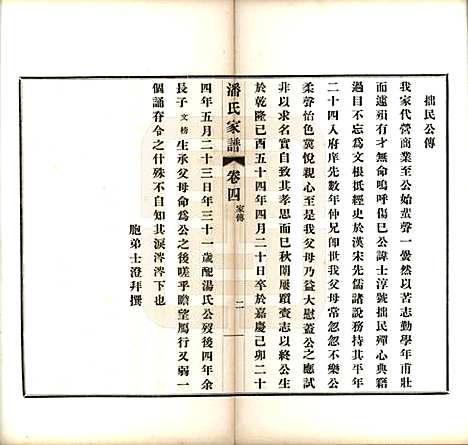 拙民公傳
我家代營商業至公始蜚聲一黌然以苦志勤學年甫壯
而遽殞有才無命嗚呼傷巳公諱士淳號拙民殫心典籍
目不忘爲文根柢經史於漢宋先儒諸說務持其平年
二十四入府庠先數年仲兄卽世我父母常忽忽不樂公
柔聲怡色冀悅親心至是我父母乃益大慰蓋公之應試
非以求名實自致其孝思而巳秋闈屢躓齎志以終公生
於乾隆己酉五十四年四月二十日卒於嘉慶己卯二十
潘氏家譜
卷四
家傳
二
四年五月二十三日年三十一歲配湯氏公歿後四年余
長子文榜生承父母命爲公之後嗟乎瞻望鴈行又弱一
個誦脊令之什殊不自知其淚涔涔下也
胞弟士澄拜撰